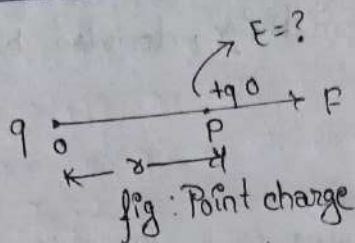 E=?
+q0 F
q O P
r
fig: Point charge